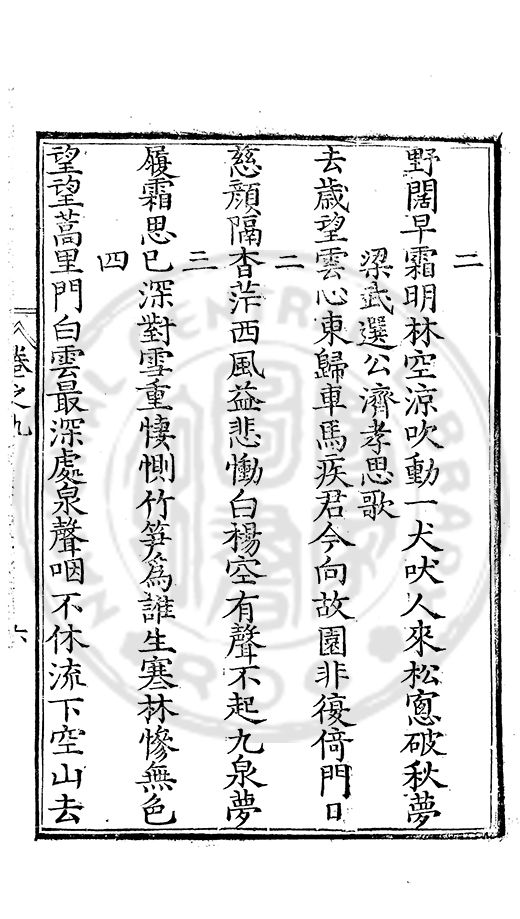 二
野闊早霜明林空涼吹動一犬吠人來松窻破秋夢
梁武選公濟孝思歌
去歲望雲心東歸車馬疾君今向故園非復倚門日
二
慈顏隔杳茫西風益悲慟白楊空有聲不起九泉夢
三
履霜思已深對雪重悽惻竹笋爲誰生塞林慘無色
四
望望蒿里門白雲最深處泉聲咽不休流下空山去
卷之九
六